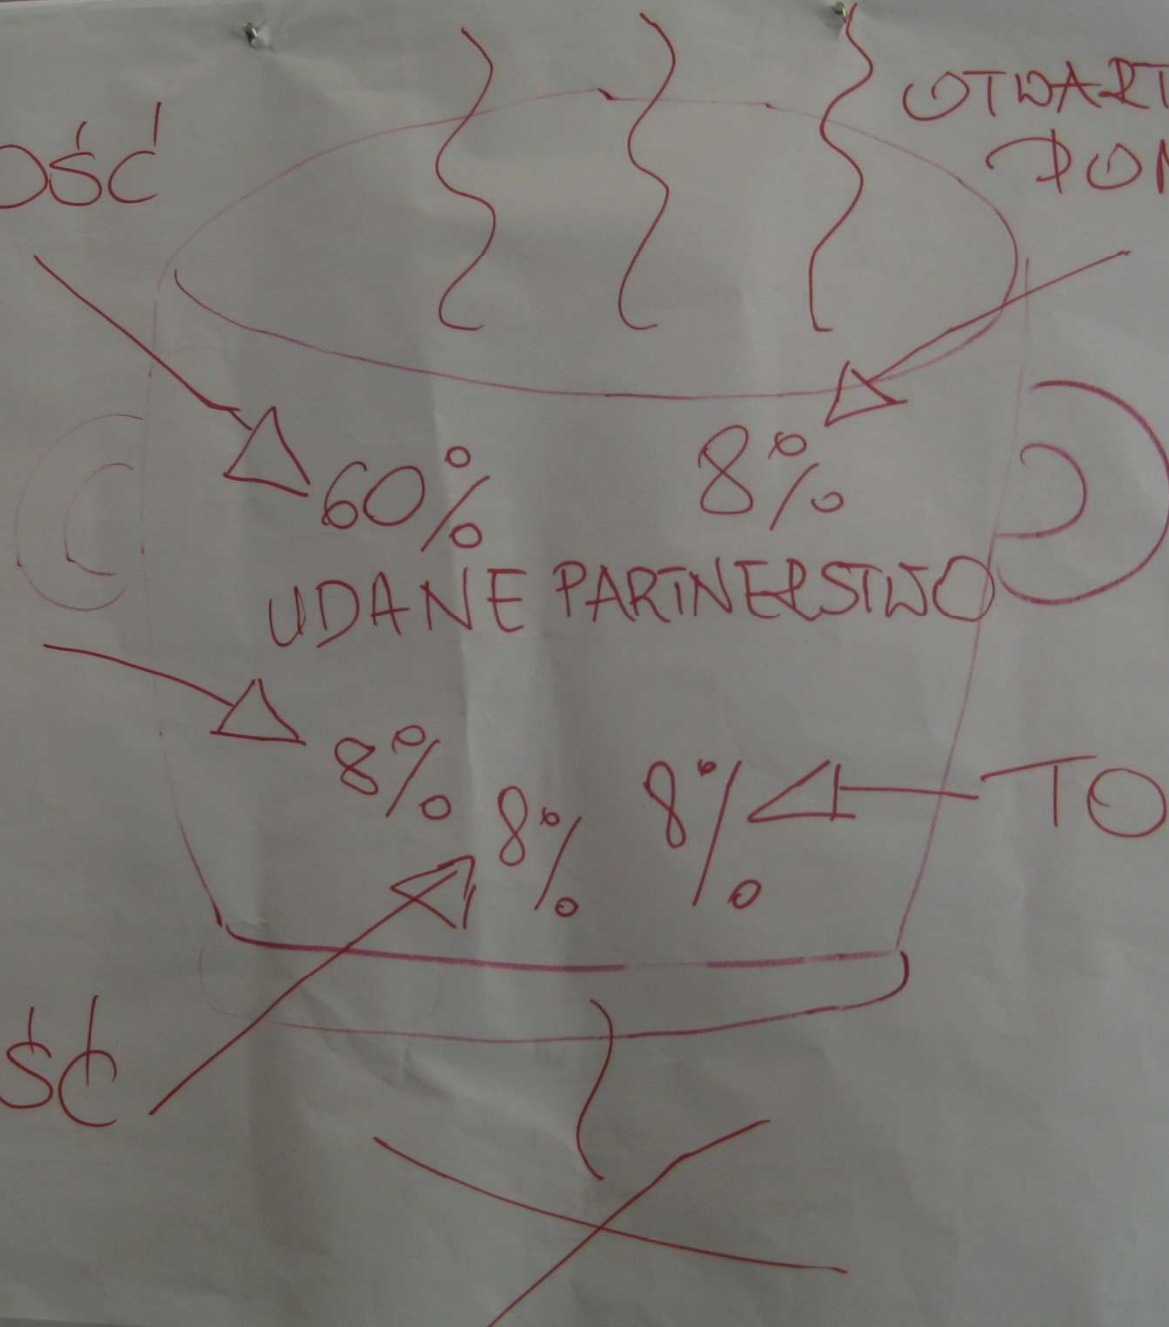 OTWART
OŚĆ
POM
60%
8%
UDANE PARTNERSTWO
8%
8%
8%
TO
ŚĆ